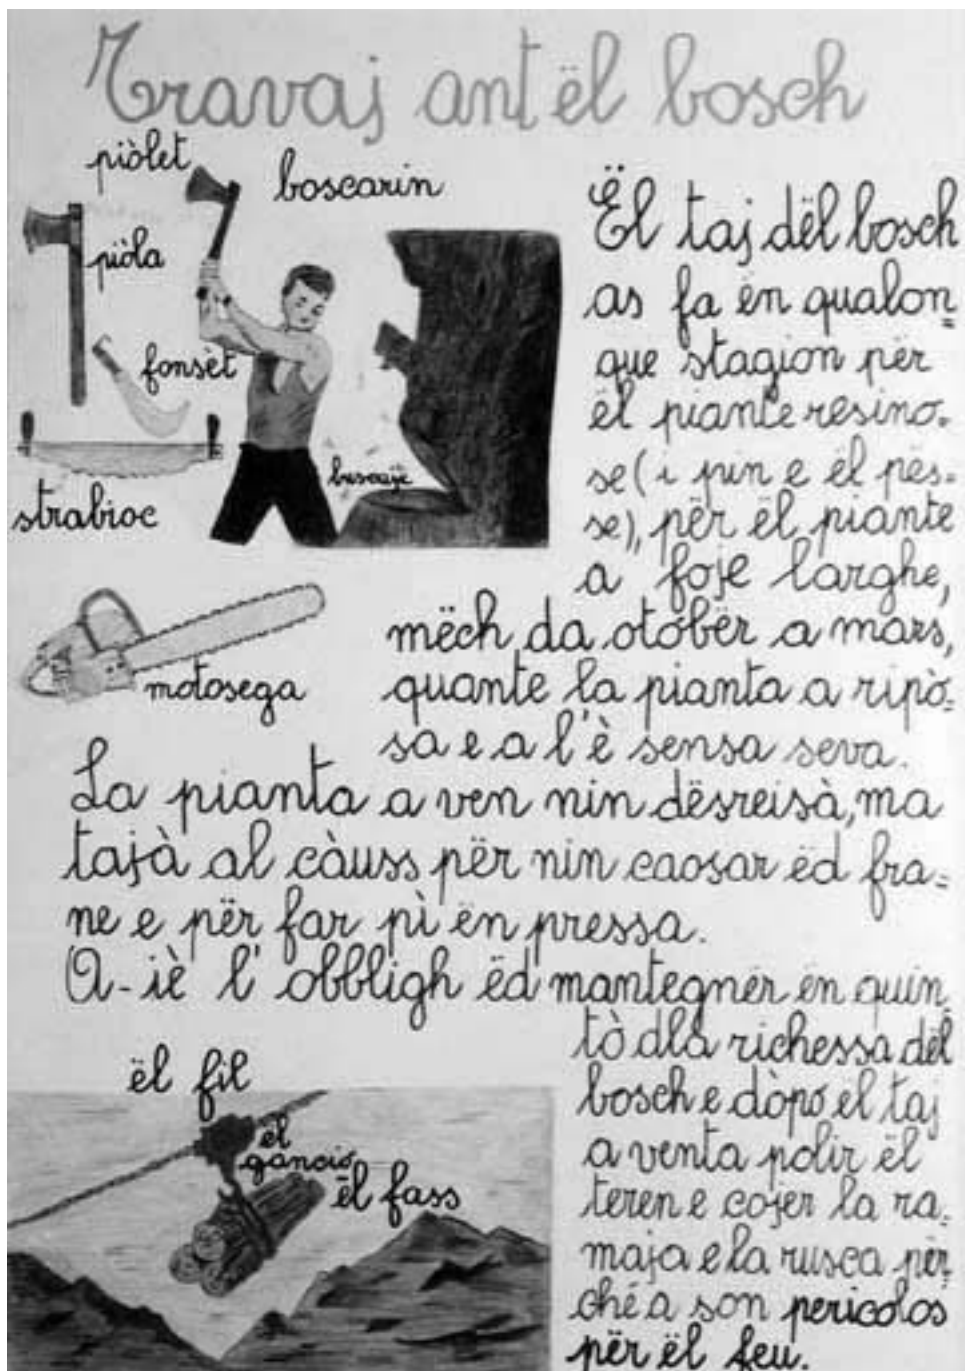 Travaj ant ël bosch
piòlet
boscarin
piòla
fonsèt
buscaje
strabioc
motosega
Ël taj dël bosch
as fa ën qualon=
que stagion për
ël piante resino=
se (i pin e ël pës=
se), për ël piante
a foje larghe,
mëch da otobër a mars,
quante la pianta a ripò=
sa e a l'è sensa seva.
La pianta a ven nin dësreisà, ma
tajà al càuss për nin caosar ëd fra=
ne e për far pì ën pressa.
A-iè l'obbligh ëd mantegnër ën quin=
tò dla richessa dël
bosch e dòpo ël taj
a venta polir ël
teren e cojer la ra=
maja e la rusca për
ché a son pericolos
për ël feu.
ël fil
ël
gancio
ël fass